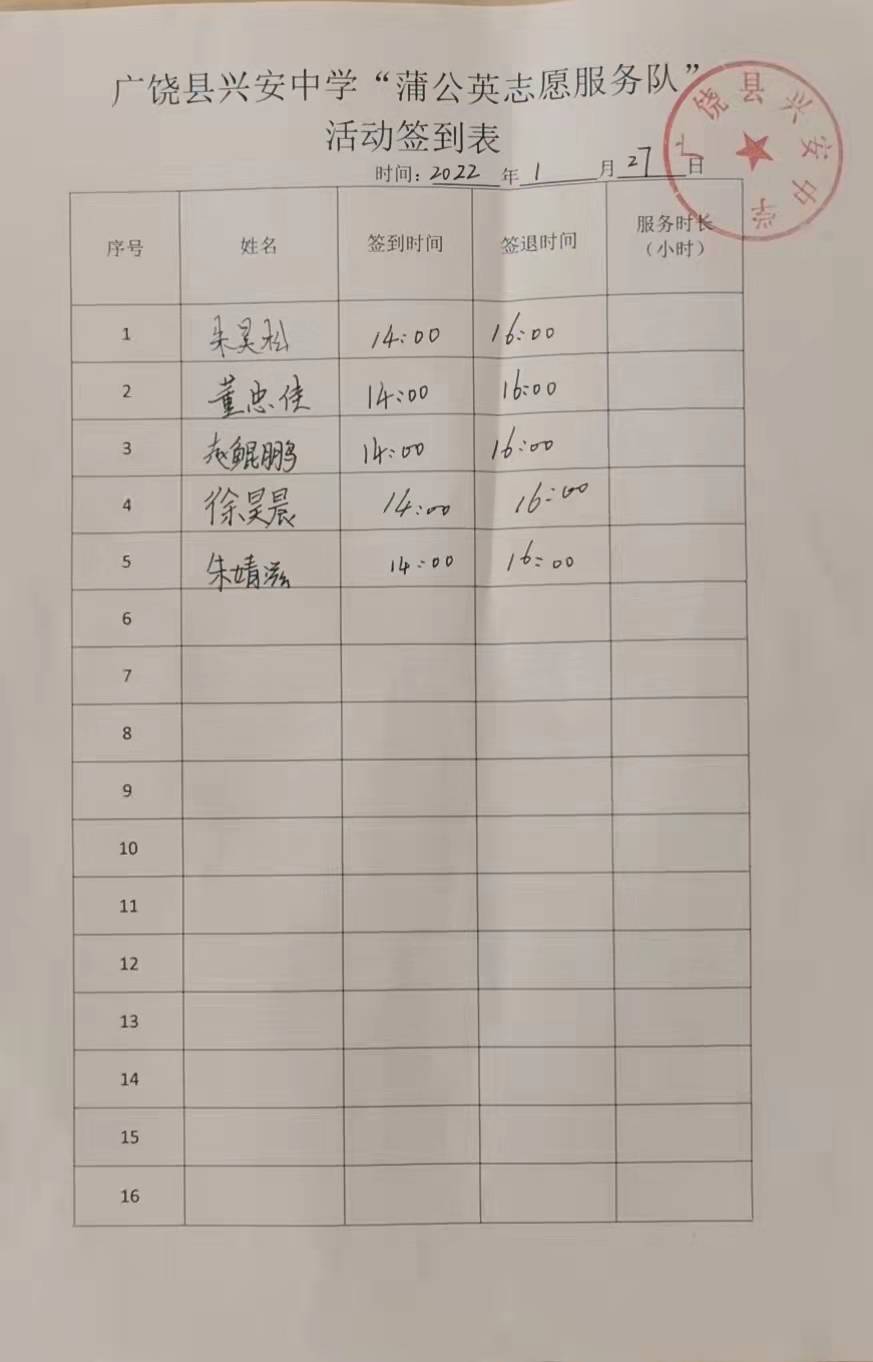 广饶县兴安中学“蒲公英志愿服务队”
活动签到表
时间：2022年1月27日
广饶县兴安中学
序号 姓名 签到时间 签退时间 服务时长（小时）
1 朱昊松 14:00 16:00
2 董忠佳 14:00 16:00
3 赵鲲鹏 14:00 16:00
4 徐昊晨 14:00 16:00
5 朱婧滋 14:00 16:00
6
7
8
9
10
11
12
13
14
15
16